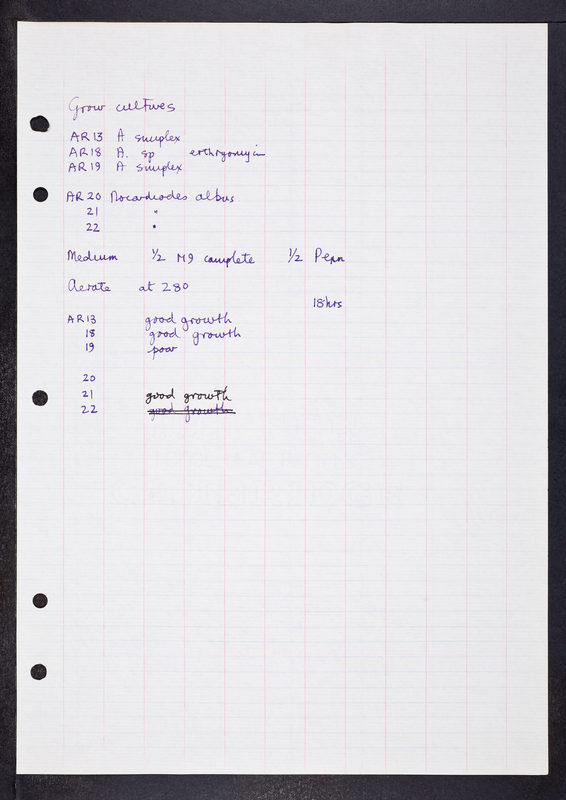 Grow cultures
AR13 A simplex
AR18 A. sp erthryomycin
AR19 A simplex
AR 20 Nocardiodes albus
21 "
22 "
Medium 1/2 M9 complete 1/2 Penn
Aerate at 280
18hrs
AR13 good growth
18 good growth
19 poor
20
21 good growth
22 good growth